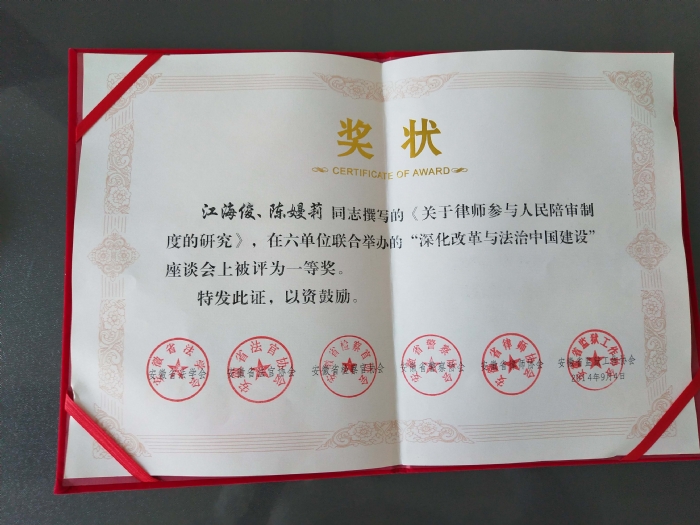 奖状
CERTIFICATE OF AWARD
江海俊、陈嫚莉 同志撰写的《关于律师参与人民陪审制
度的研究》，在六单位联合举办的“深化改革与法治中国建设”
座谈会上被评为一等奖。
特发此证，以资鼓励。
安徽省法学会 安徽省法官协会 安徽省检察官协会 安徽省警察协会 安徽省律师协会 安徽省监狱工作协会
2014年9月